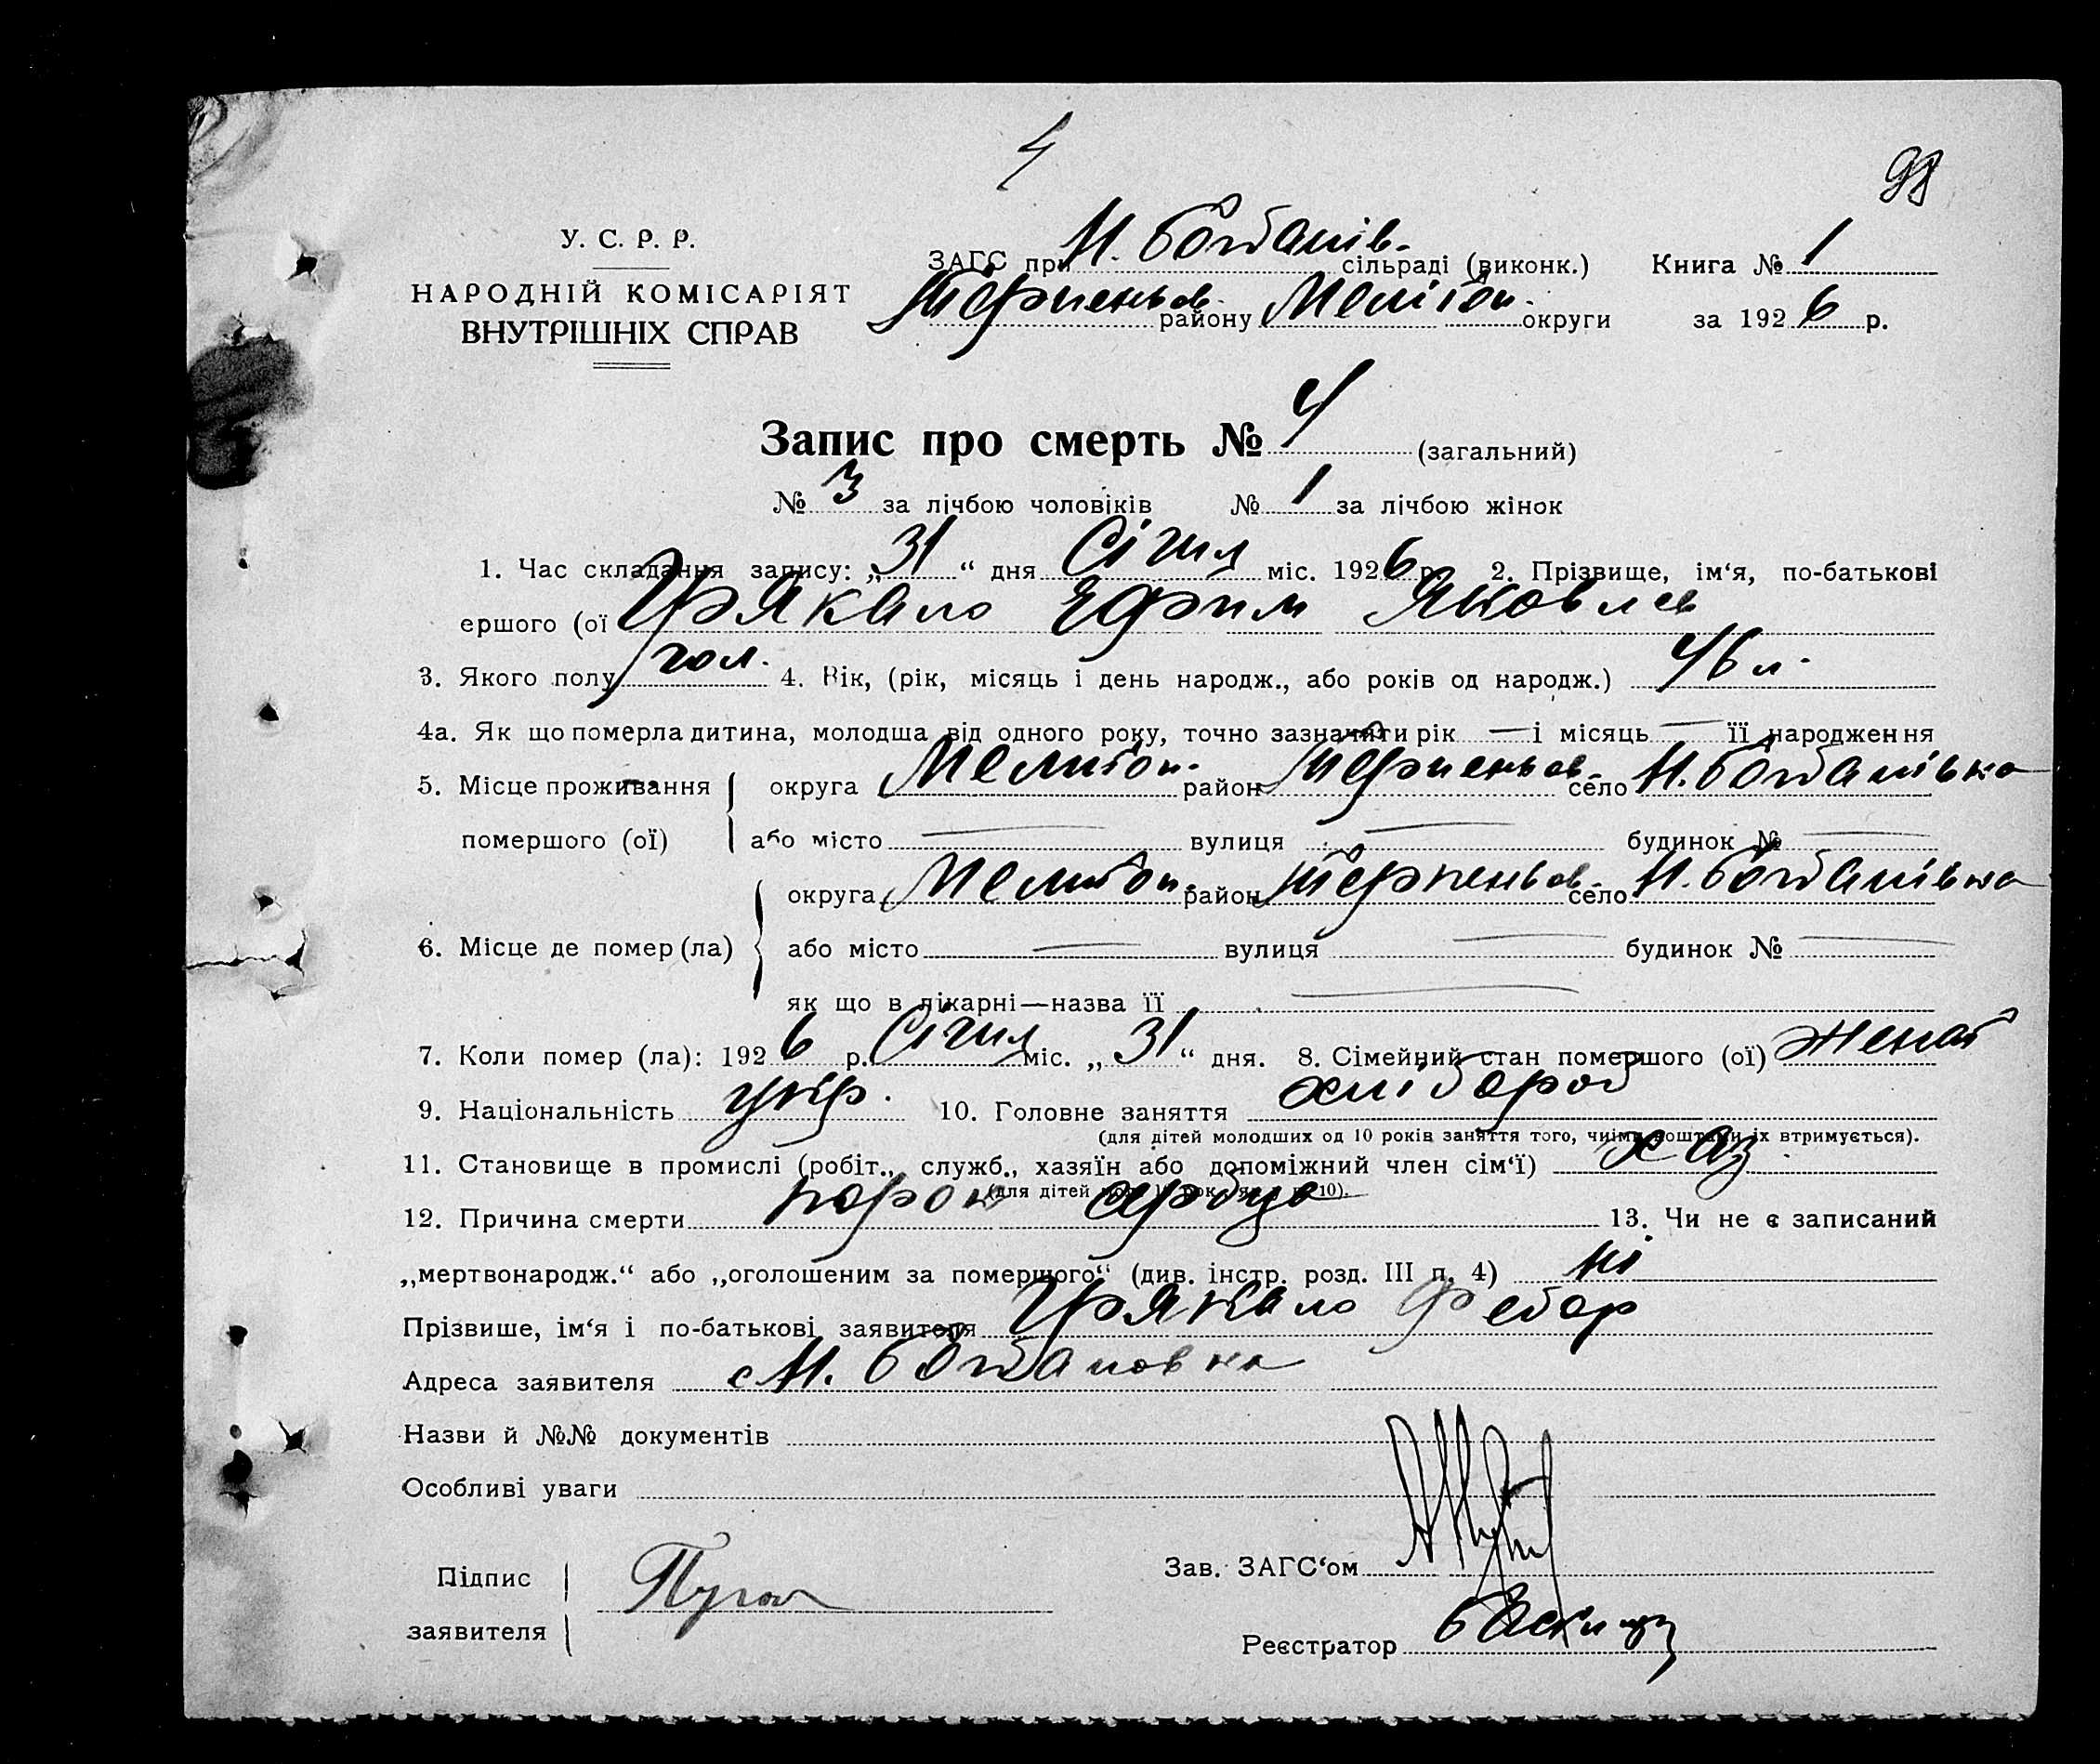 4
98
У. С. Р. Р.
НАРОДНІЙ КОМІСАРІЯТ
ВНУТРІШНІХ СПРАВ
ЗАГС при Н. Богданів- сільраді (виконк.) Книга № 1
Терпеньев- району Меліт. округи за 1926 р.
Запис про смерть № 4 (загальний)
№ 3 за лічбою чоловіків № 1 за лічбою жінок
1. Час складання запису: „31“ дня Січня міс. 1926 р. 2. Прізвище, ім‘я, по-батькові
ершого (ої Грякало Ефрим Яковлев
3. Якого полу чол. 4. Вік, (рік, місяць і день народж., або років од народж.) 46 л.
4а. Як що померла дитина, молодша від одного року, точно зазначити рік — і місяць — її народження
5. Місце проживання округа Мелитоп. район Терпеньев- село Н. Богданівка
помершого (ої) або місто — вулиця — будинок № —
округа Мелитоп. район Терпеньев- село Н. Богданівка
6. Місце де помер (ла) або місто — вулиця — будинок № —
як що в лікарні—назва її —
7. Коли помер (ла): 1926 р. Січня міс. „31“ дня. 8. Сімейний стан помершого (ої) женат
9. Національність укр. 10. Головне заняття хлібороб
(для дітей молодших од 10 років заняття того, чиїми коштами їх втримується).
11. Становище в промислі (робіт., служб., хазяїн або допоміжний член сім‘ї) хаз.
(для дітей 10).
12. Причина смерти порок сердца 13. Чи не є записаний
„мертвонародж.“ або „оголошеним за помершого“ (див. інстр. розд. III п. 4) ні
Прізвише, ім‘я і по-батькові заявителя Грякало Федор
Адреса заявителя с Н. Богдановка
Назви й №№ документів
Особливі уваги
Підпис
заявителя
Зав. ЗАГС‘ом
Реєстратор